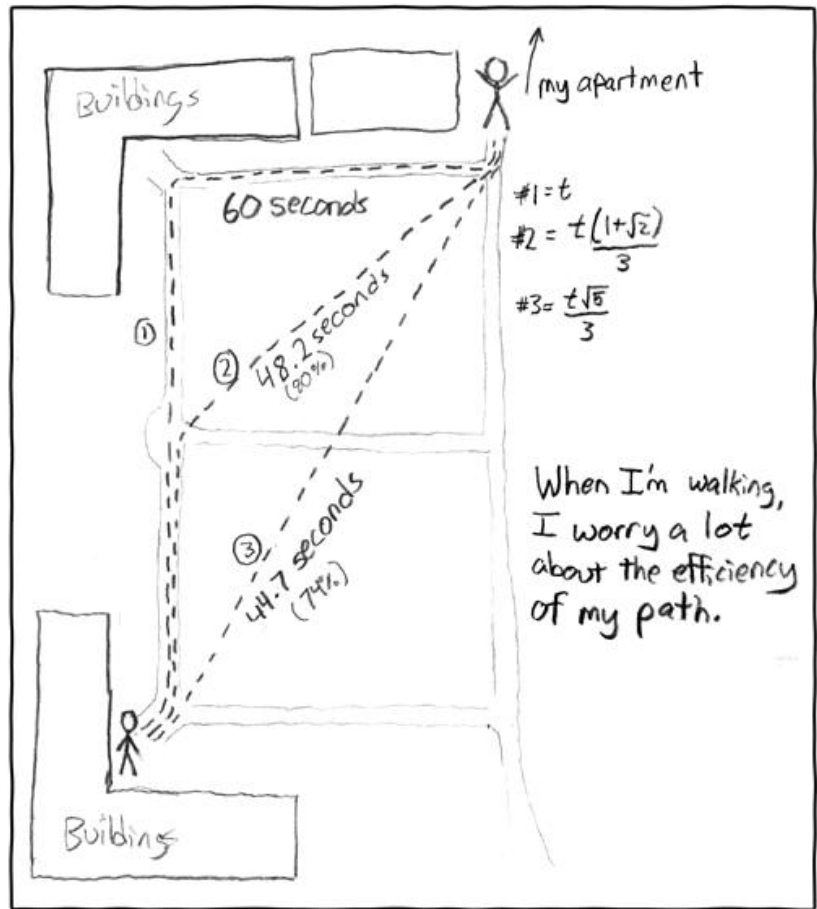 Buildings
my apartment
60 seconds
#1 = t
#2 = t(1+√2)/3
#3 = t√5/3
①
② 48.2 seconds
(80%)
③ 44.7 seconds
(74%)
When I'm walking,
I worry a lot
about the efficiency
of my path.
Buildings